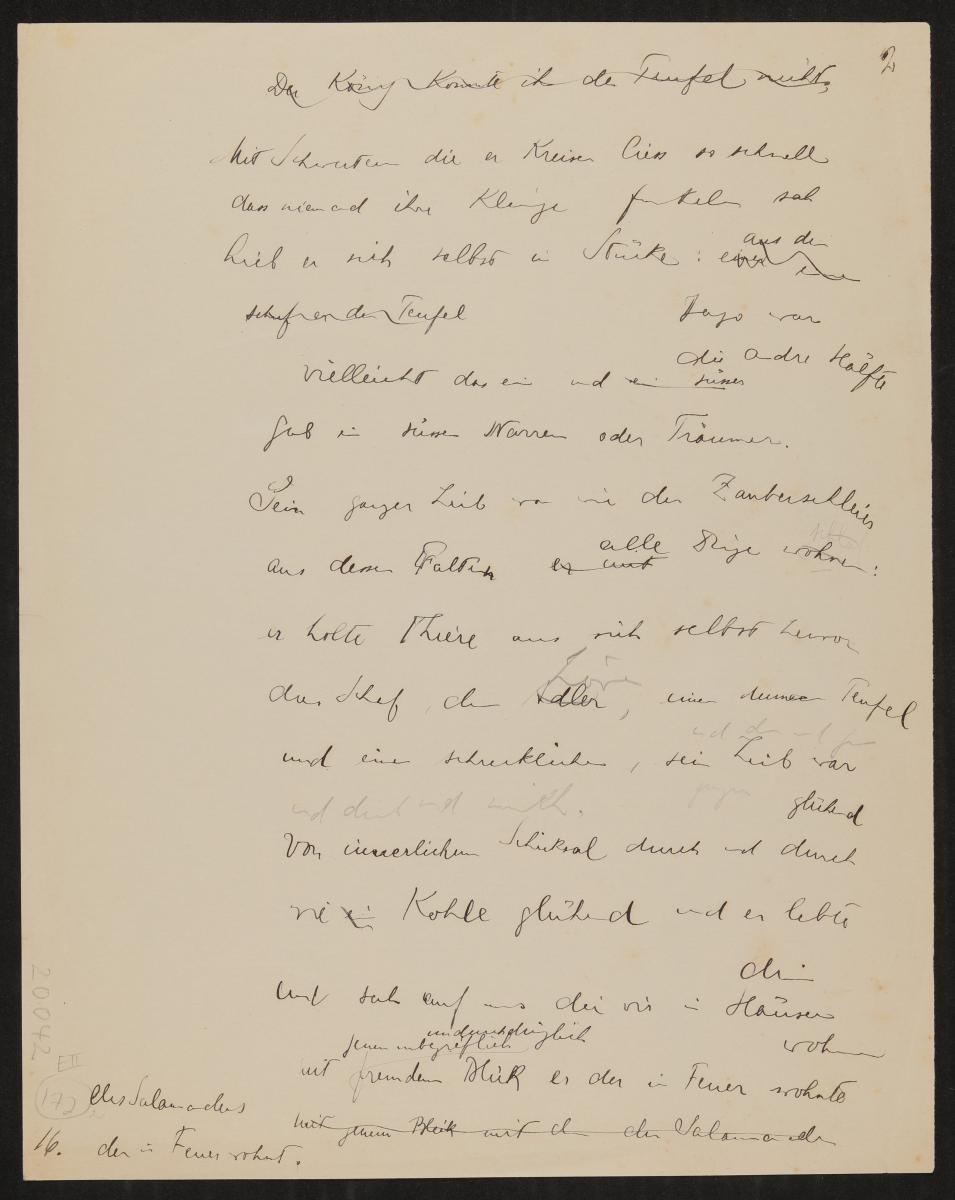 2
Der König konnte ihn den Teufel nicht,
Mit Schwertern die er kreisen liess so schnell
dass niemand ihre Klinge funkeln sah
hieb er sich selbst in Stücke : einen aus den einen
schuf er den Teufel Jago war
vielleicht das ein und ein süsser die andre Hälfte
gab ein süssen Narren oder Träumer.
Sein ganzer Leib war wie der Zauberschleier
aus dessen Falten er mit alle Dinge wohnen :
er holte Thiere aus sich selbst hervor
das Schaf, den Adler, Löwen einen dummen Teufel
und einen schrecklichen, sein Leib war
und dich und mich. glühend
Von innerlichem Schicksal durch und durch
wie ein Kohle glühend und er lebte
drin
Und sah auf uns die wir in Häusern
wohnen
jenem unbegreiflich undurchdringlich
mit fremdem Blick er der in Feuer wohnte
mit jenem Blick mit dem der Salamander
des Salamanders
der in Feuer wohnt.
20042
EII
172
16.